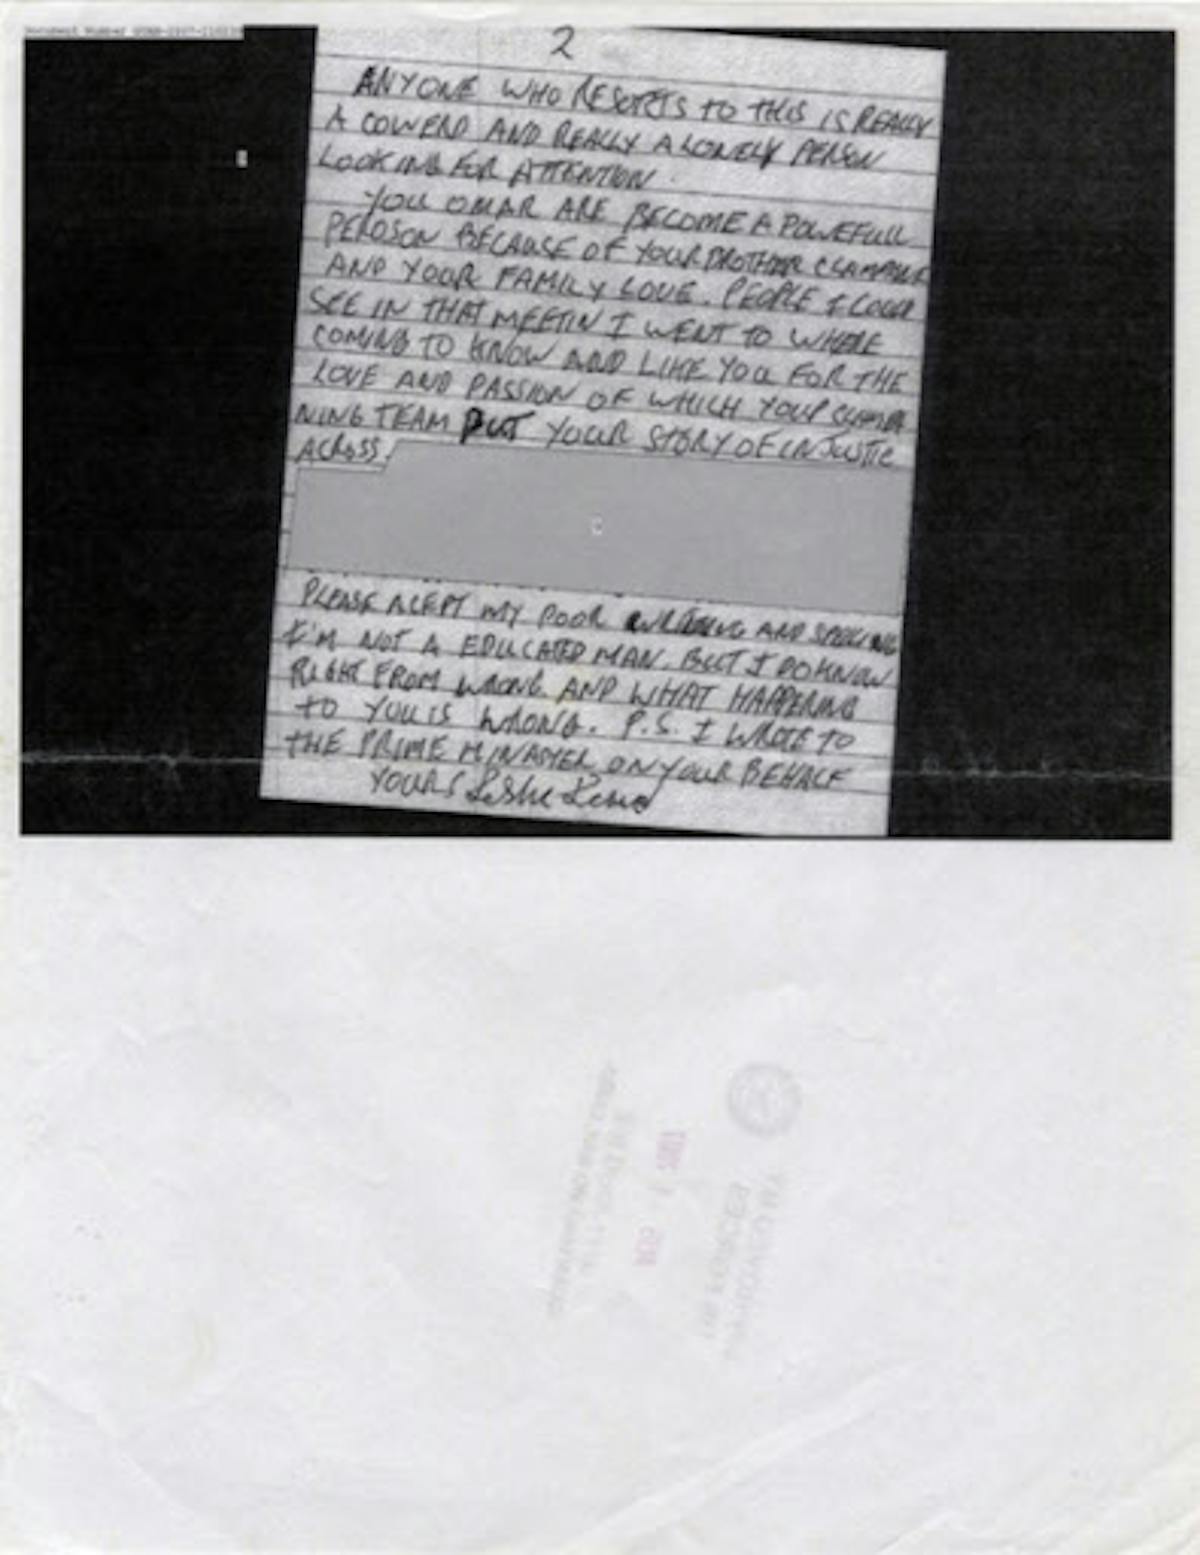 2
ANYONE WHO RESORTS TO THIS IS REALLY
A COWERD AND REALLY A LONELY PERSON
LOOKING FOR ATTENTION
YOU OMAR ARE BECOME A POWEFULL
PEROSON BECAUSE OF YOUR BROTHER
AND YOUR FAMILY LOVE. PEOPLE I COULD
SEE IN THAT MEETIN I WENT TO WHERE
COMING TO KNOW AND LIKE YOU FOR THE
LOVE AND PASSION OF WHICH YOUR
NING TEAM PUT YOUR STORY OF INJUSTIC
ACROSS.
PLEASE ACEPT MY POOR WRITING AND SPELLING
I'M NOT A EDUCATED MAN. BUT I DO KNOW
RIGHT FROM WRONG AND WHAT HAPPENING
TO YOU IS WRONG. P.S. I WROTE TO
THE PRIME MINASTER ON YOUR BEHALF
YOURS